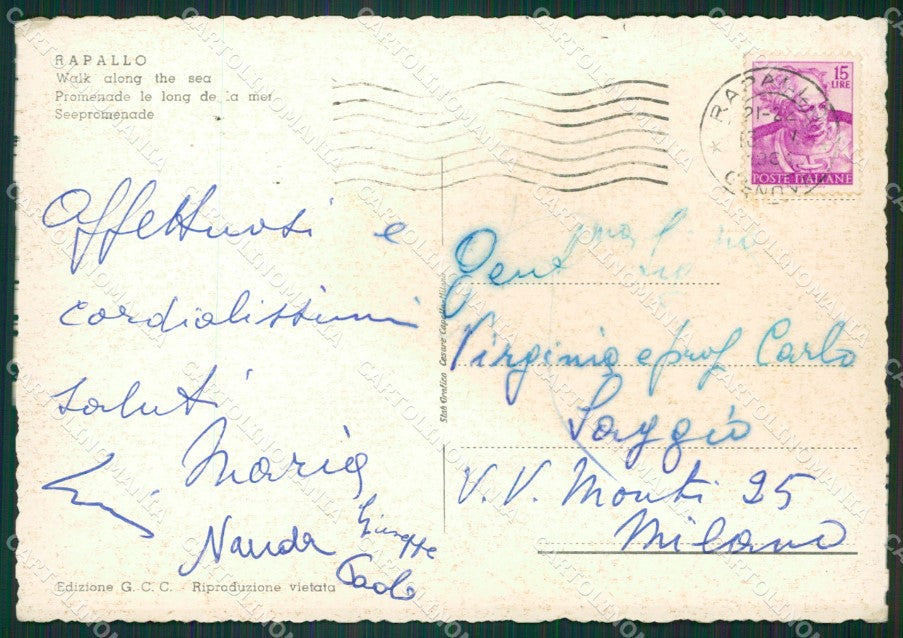 RAPALLO
Walk along the sea
Promenade le long de la mer
Seepromenade
15
LIRE
POSTE ITALIANE
RAPALLO
21-22
GENOVA
Affettuosi e
cordialissimi
saluti
Maria
Nanda Giuseppe
Paolo
Edizione G. C. C. - Riproduzione vietata
Stab Grafico Cesare Capello Milano
Gent
Virginia e prof Carlo
Saggio
V. V. Monti 25
Milano
CARTOLINOMANIA